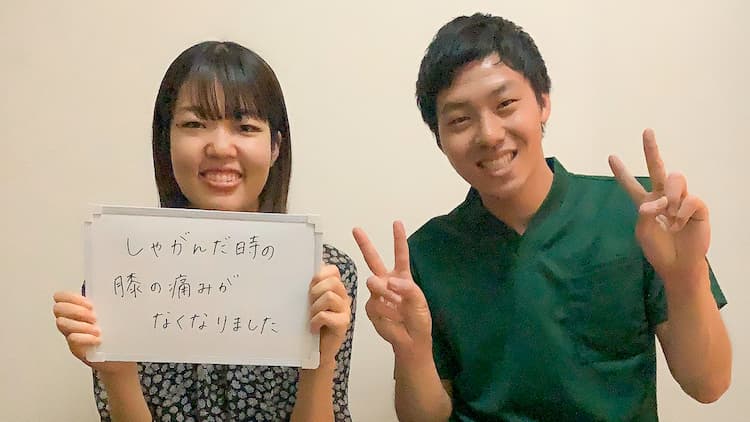 しゃがんだ時の
膝の痛みが
なくなりました